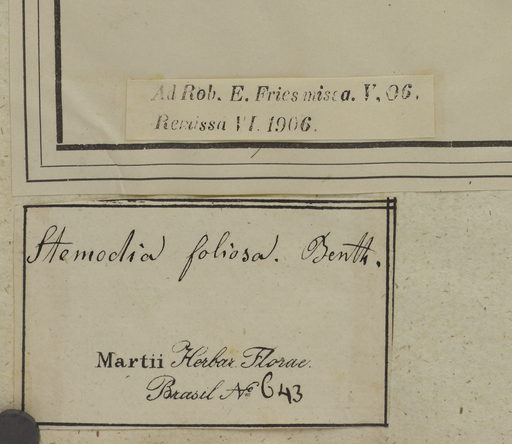 Ad Rob. E. Fries missa. V. 06.
Remissa VI. 1906.
Stemodia foliosa. Benth.
Martii Herbar. Florae
Brasil Nº 643